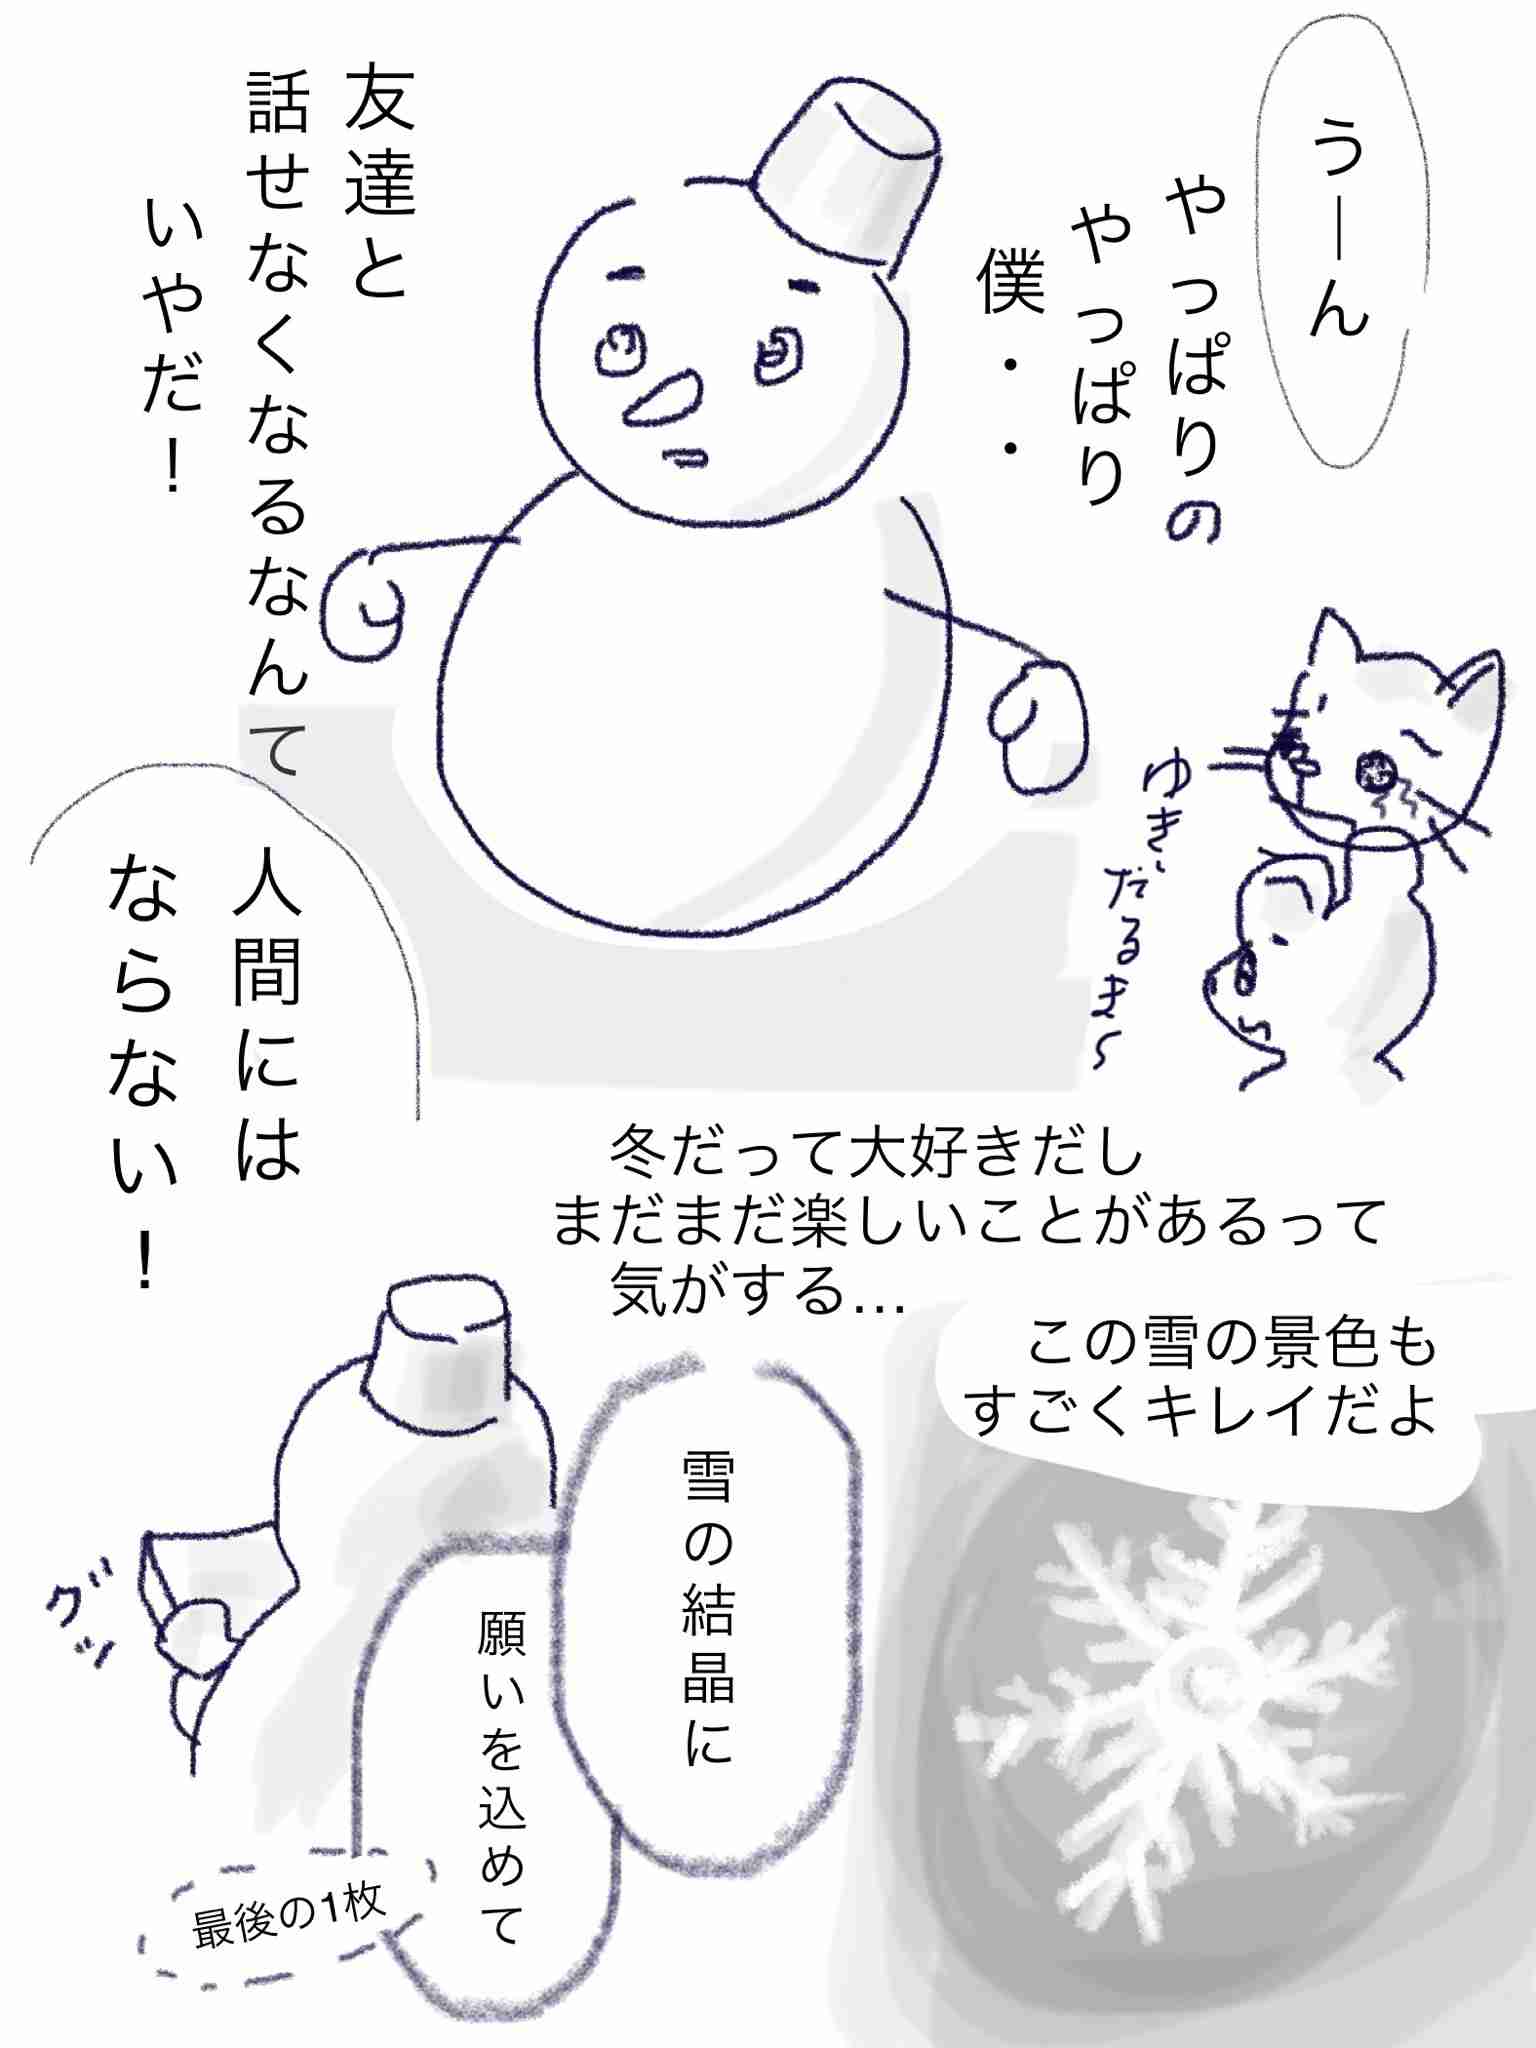 うーん
やっぱりの
やっぱり
僕・・
友達と
話せなくなるなんて
いやだ！
ゆきだるま〜
人間には
ならない！
冬だって大好きだし
まだまだ楽しいことがあるって
気がする…
この雪の景色も
すごくキレイだよ
雪の結晶に
願いを込めて
グッ
最後の1枚